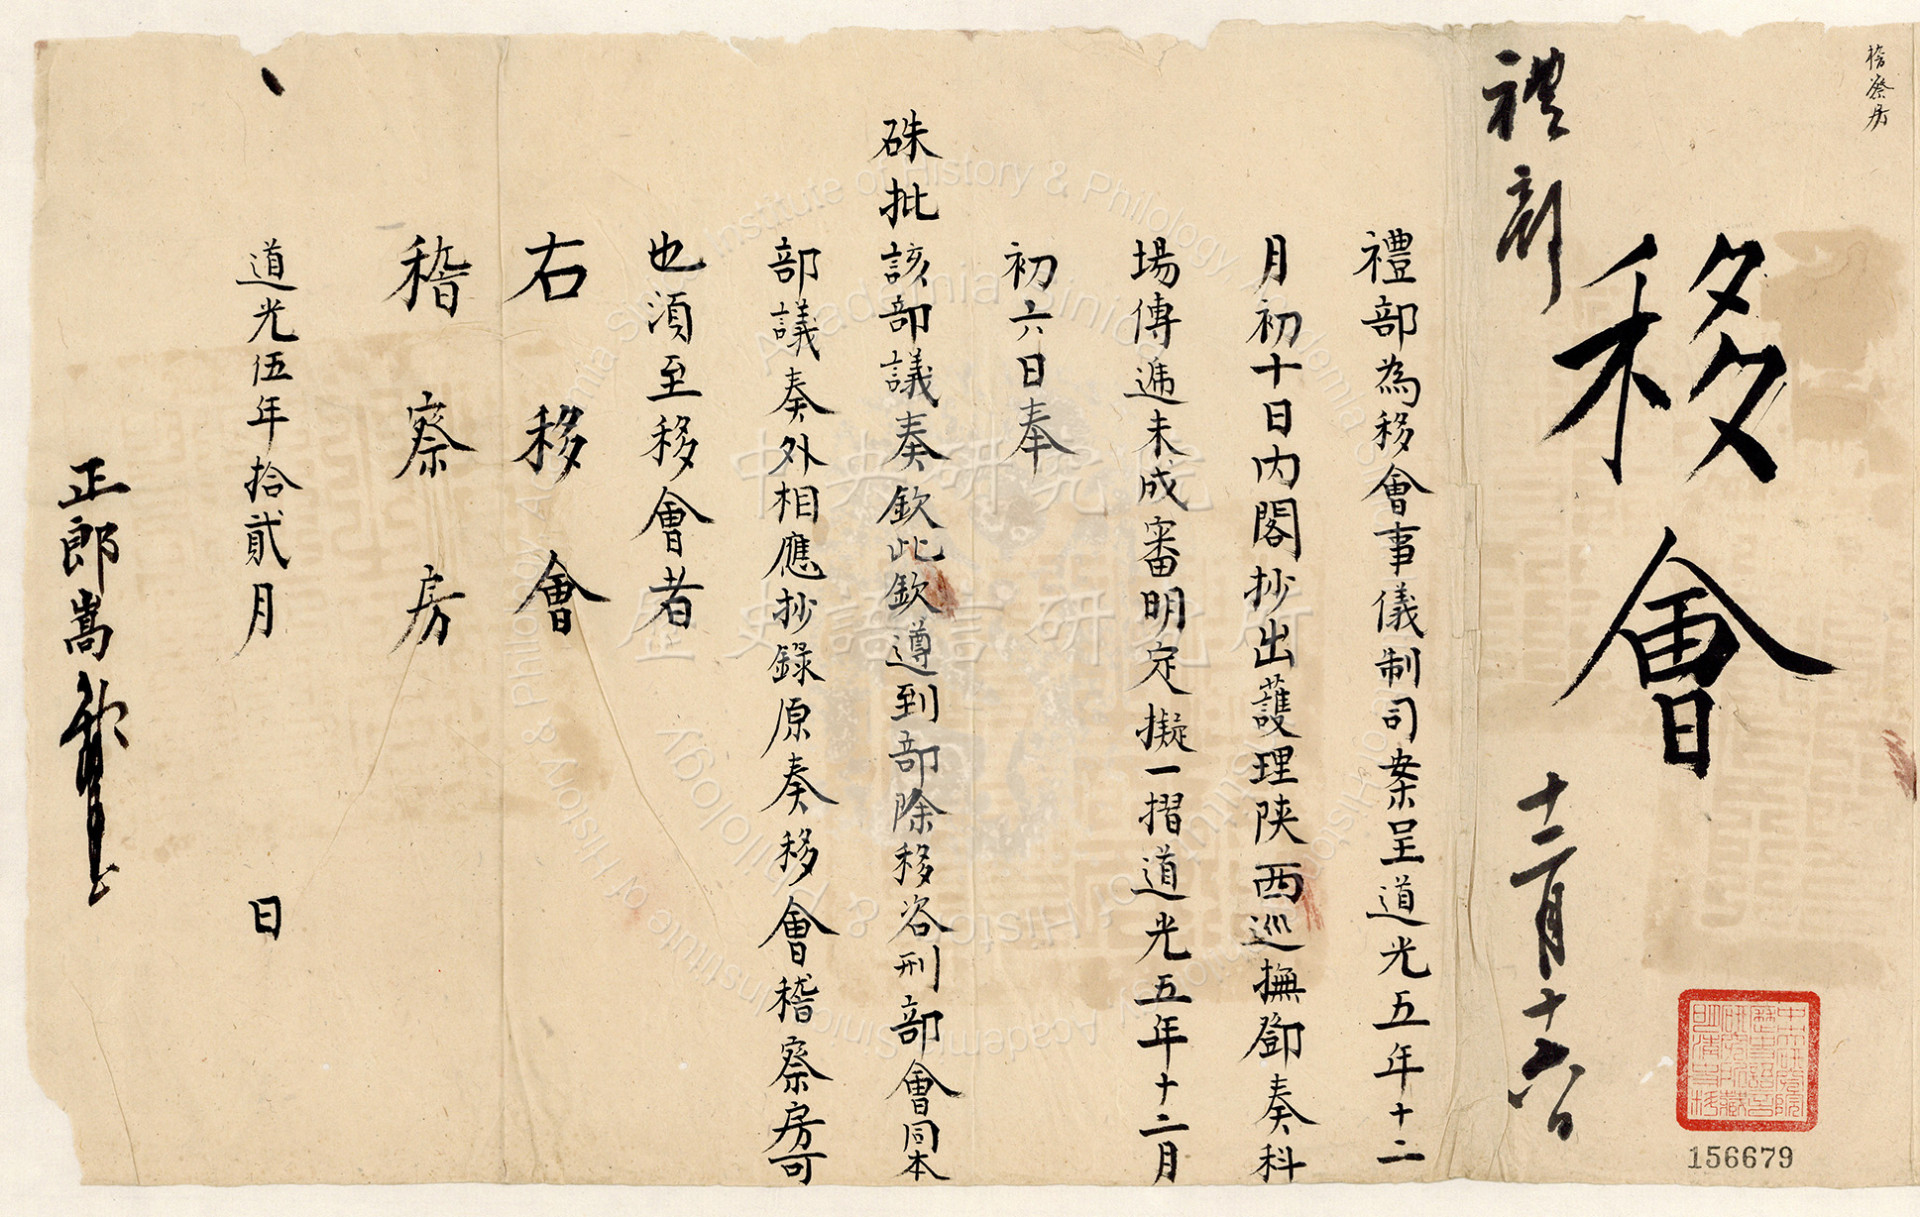 稽察房
移會
禮部
十二月十六日
禮部為移會事儀制司案呈道光五年十二
月初十日內閣抄出護理陝西巡撫鄧奏科
場傳遞未成審明定擬一摺道光五年十二月
初六日奉
硃批該部議奏欽此欽遵到部除移咨刑部會同本
部議奏外相應抄錄原奏移會稽察房可
也須至移會者
右移會
稽察房
道光伍年拾貳月 日
正郎嵩
156679
中央研究院
歷史語言研究所
Institute of History & Philology, Academia Sinica